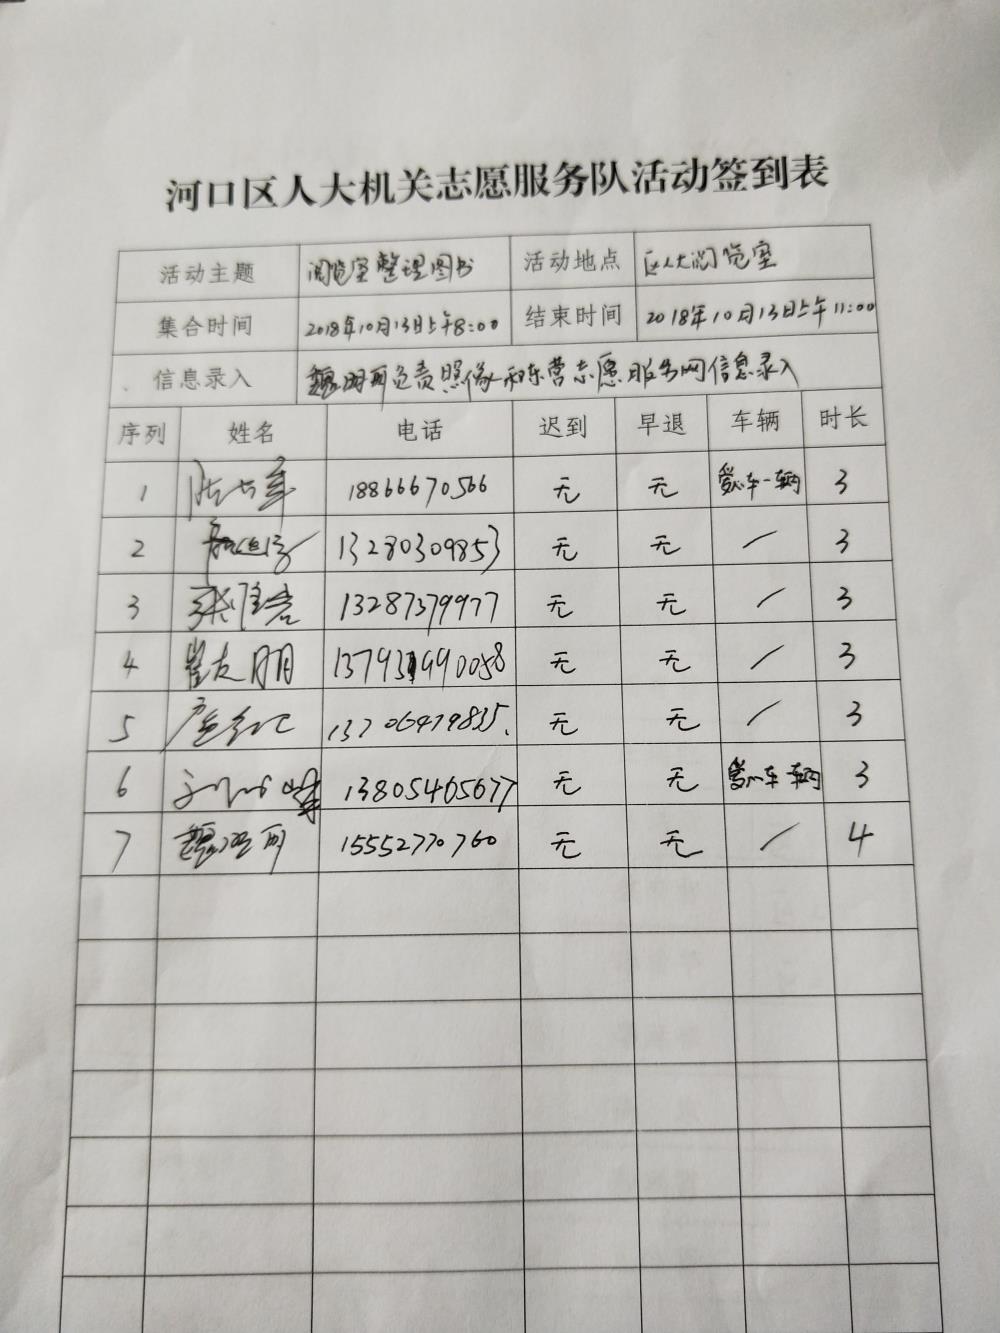 河口区人大机关志愿服务队活动签到表
活动主题 阅览室整理图书 活动地点 区人大阅览室
集合时间 2018年10月13日上午8:00 结束时间 2018年10月13日上午11:00
信息录入 魏 负责照像和东营志愿服务网信息录入
序列 姓名 电话 迟到 早退 车辆 时长
1 18866670566 无 无 爱心车一辆 3
2 13280309853 无 无 / 3
3 张 13287379977 无 无 / 3
4 崔友朋 无 无 / 3
5 13706479835. 无 无 / 3
6 13805465677 无 无 爱心车一辆 3
7 魏 15552770760 无 无 / 4